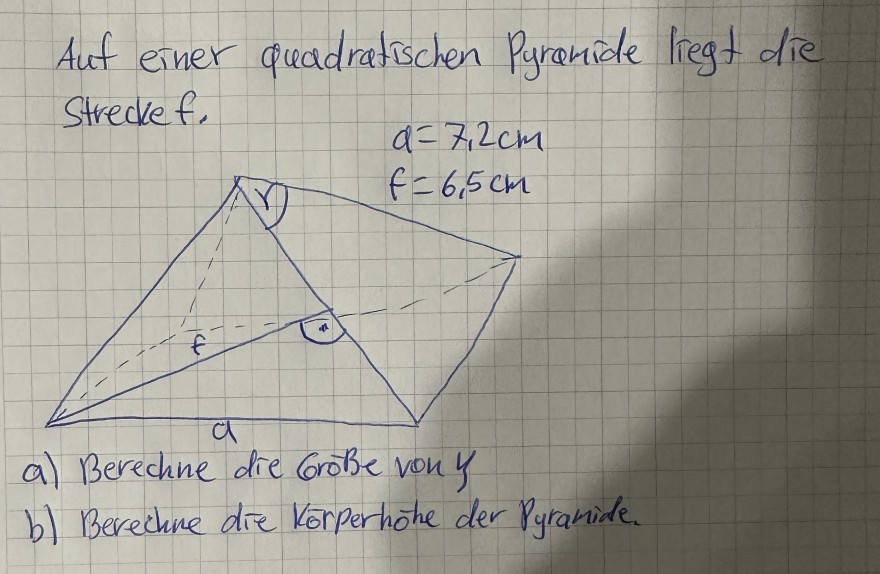 Auf einer quadratischen Pyramide liegt die
Strecke f.
a = 7,2 cm
f = 6,5 cm
γ
f
a
a) Berechne die Größe von γ
b) Berechne die Körperhöhe der Pyramide.